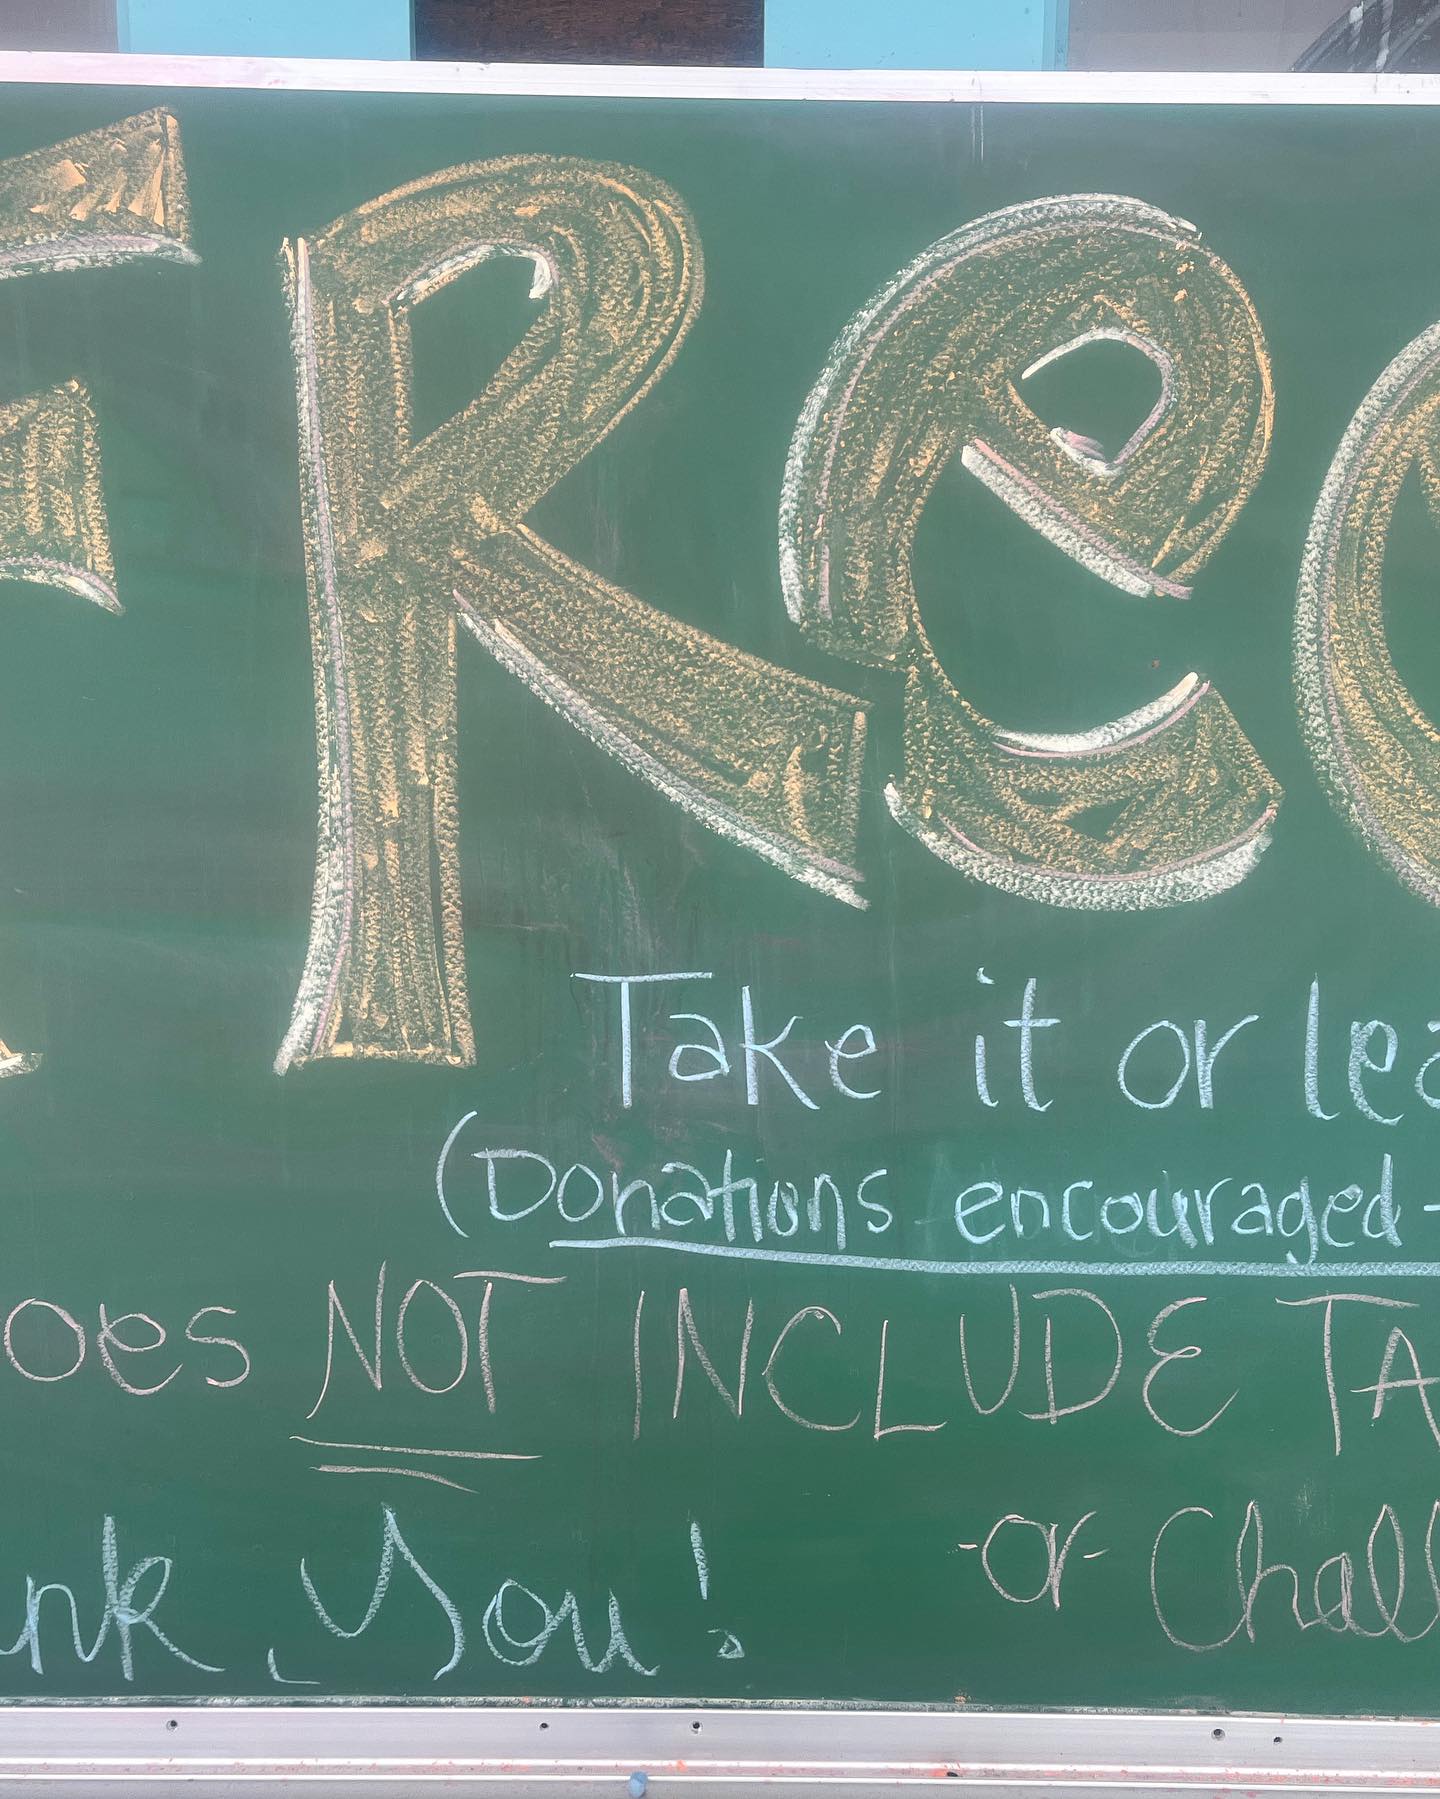 FRee
Take it or lea
(Donations encouraged-
oes NOT INCLUDE TA
nk you!
-or- Chall